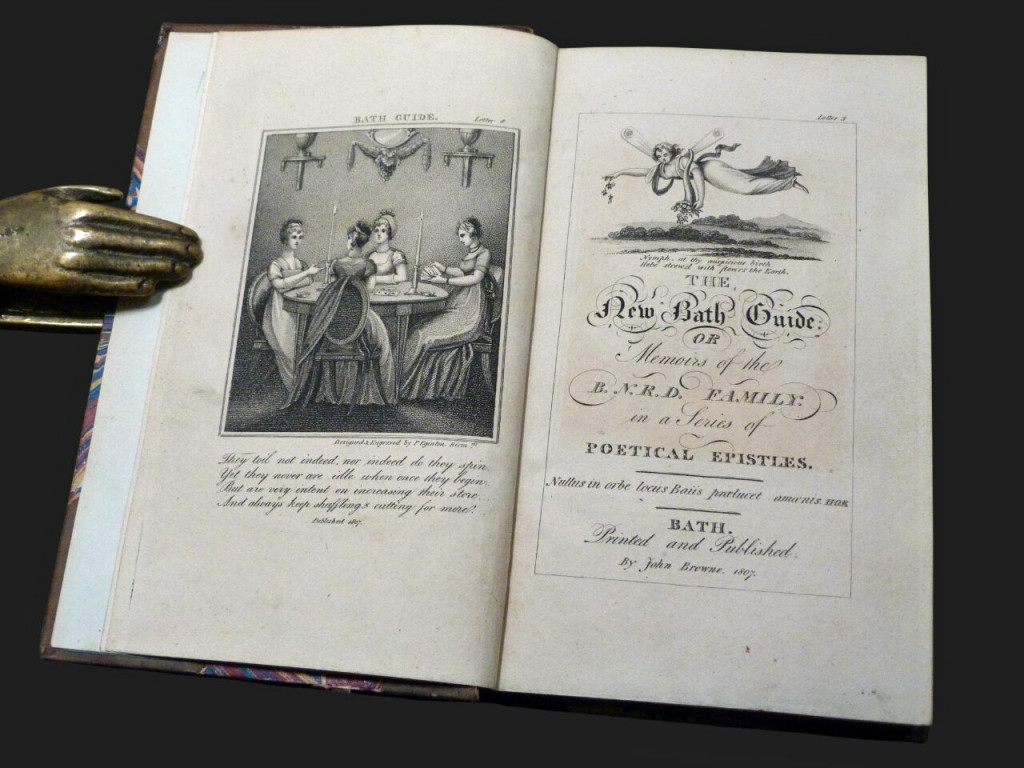 BATH GUIDE.
Letter 8
Designed & Engraved by F. Eginton Birm.m
They toil not indeed, nor indeed do they spin,
Yet they never are idle when once they begin,
But are very intent on increasing their store,
And always keep shuffling & cutting for more!
Published 1807
Letter 3
Nymph, at thy auspicious birth
Hebe strew'd with flow'rs the Earth.
THE
New Bath Guide;
OR
Memoirs of the
B. N. R. D. FAMILY.
in a Series of
POETICAL EPISTLES.
Nullus in orbe locus Baiis prælucet amœnis. HOR
BATH.
Printed and Published
By John Browne. 1807.